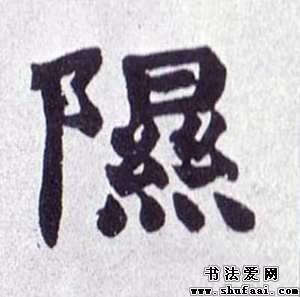 隰
书法爱网
www.shufaai.com